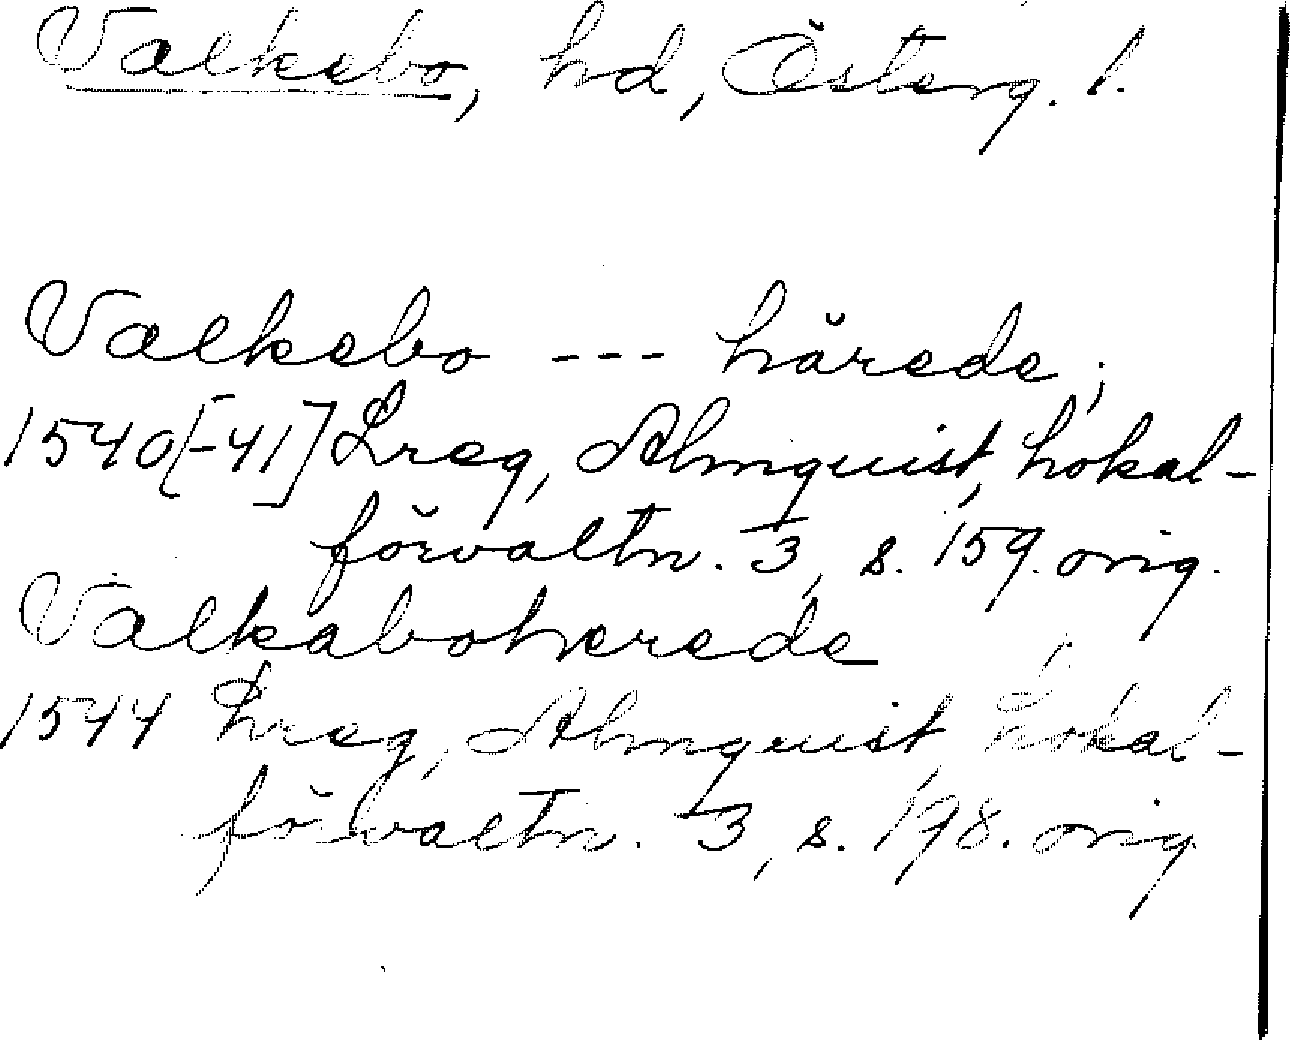 Valkebo, hd, Österg. l.
Valkebo --- härede;
1540[-41] Lreg, Almquist, Lokal-
förvaltn. 3, s. 159. orig.
Valkaboherede
1544 Lreg, Almquist, Lokal-
förvaltn. 3, s. 198. orig.